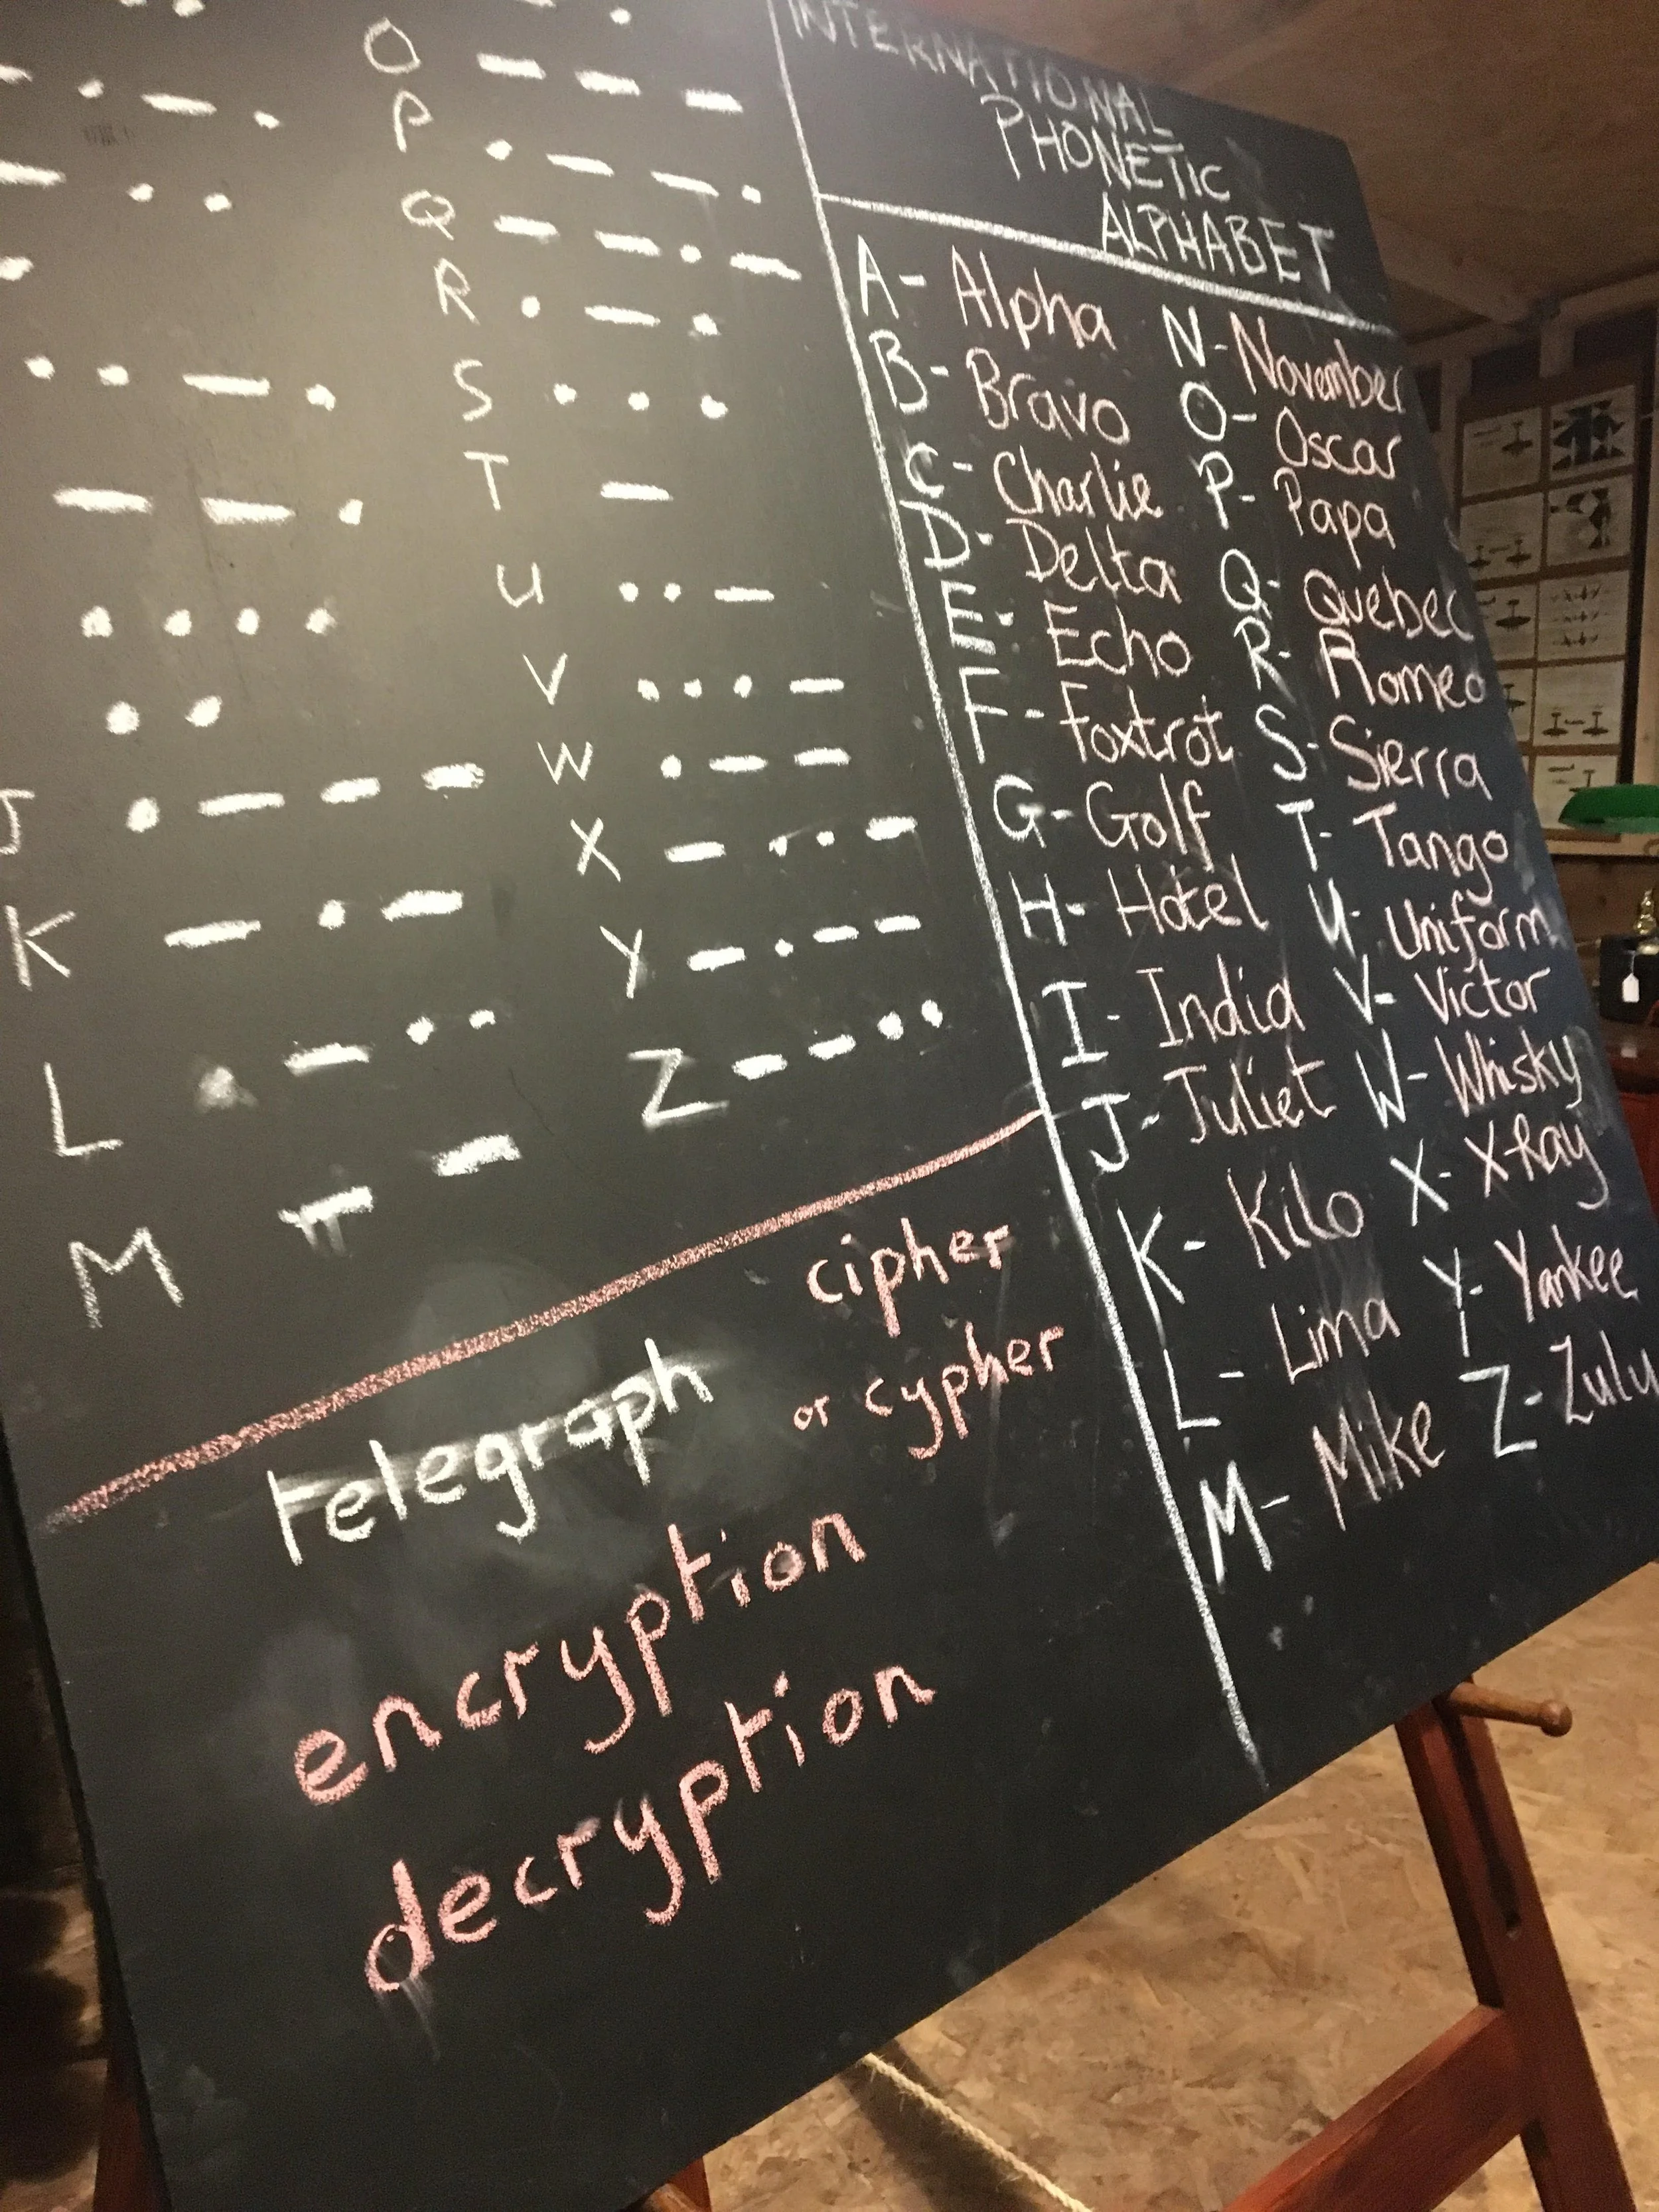 O — — —
P • — — •
Q — — • —
R • — •
S • • •
T —
U • • —
V • • • —
W • — —
X — • • —
Y — • — —
Z — — • •
— • — •
— • •
•
• • — •
— — •
• • • •
• •
J • — — —
K — • —
L • — • •
M — —
INTERNATIONAL
PHONETIC
ALPHABET
A- Alpha N- November
B- Bravo O- Oscar
C- Charlie P- Papa
D- Delta Q- Quebec
E- Echo R- Romeo
F- Foxtrot S- Sierra
G- Golf T- Tango
H- Hotel U- Uniform
I- India V- Victor
J- Juliet W- Whisky
K- Kilo X- X-Ray
L- Lima Y- Yankee
M- Mike Z- Zulu
cipher
or cypher
telegraph
encryption
decryption